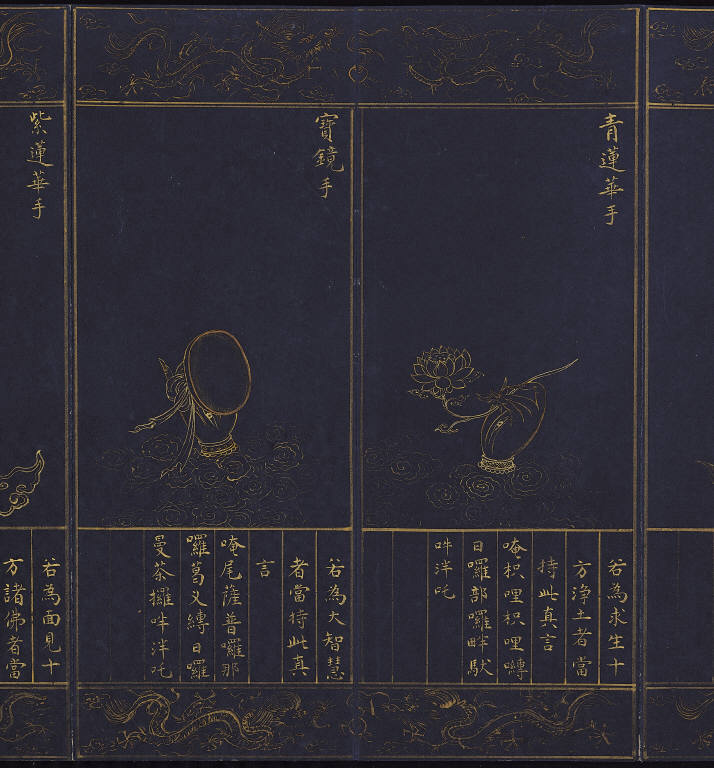 青蓮華手
若為求生十
方淨土者當
持此真言
唵枳哩枳哩嚩
日囉部囉畔馱
吽泮吒
寶鏡手
若為大智慧
者當持此真
言
唵尾薩普囉那
囉葛叉縛日囉
曼荼攞吽泮吒
紫蓮華手
若為面見十
方諸佛者當